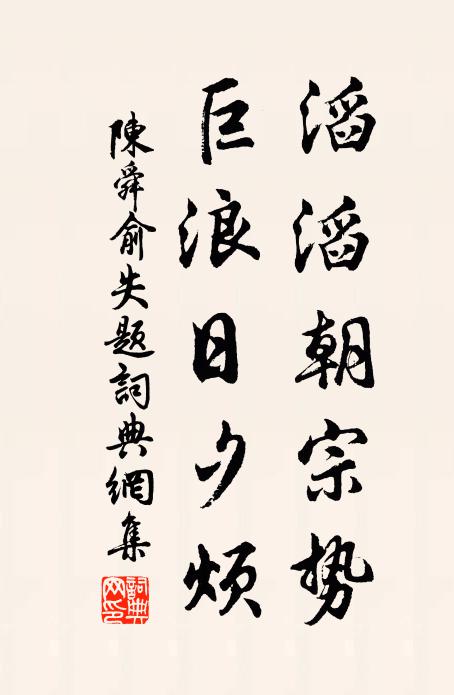 滔滔朝宗勢
巨浪日夕煩
陳舜俞失題詞典網集
詞典網印